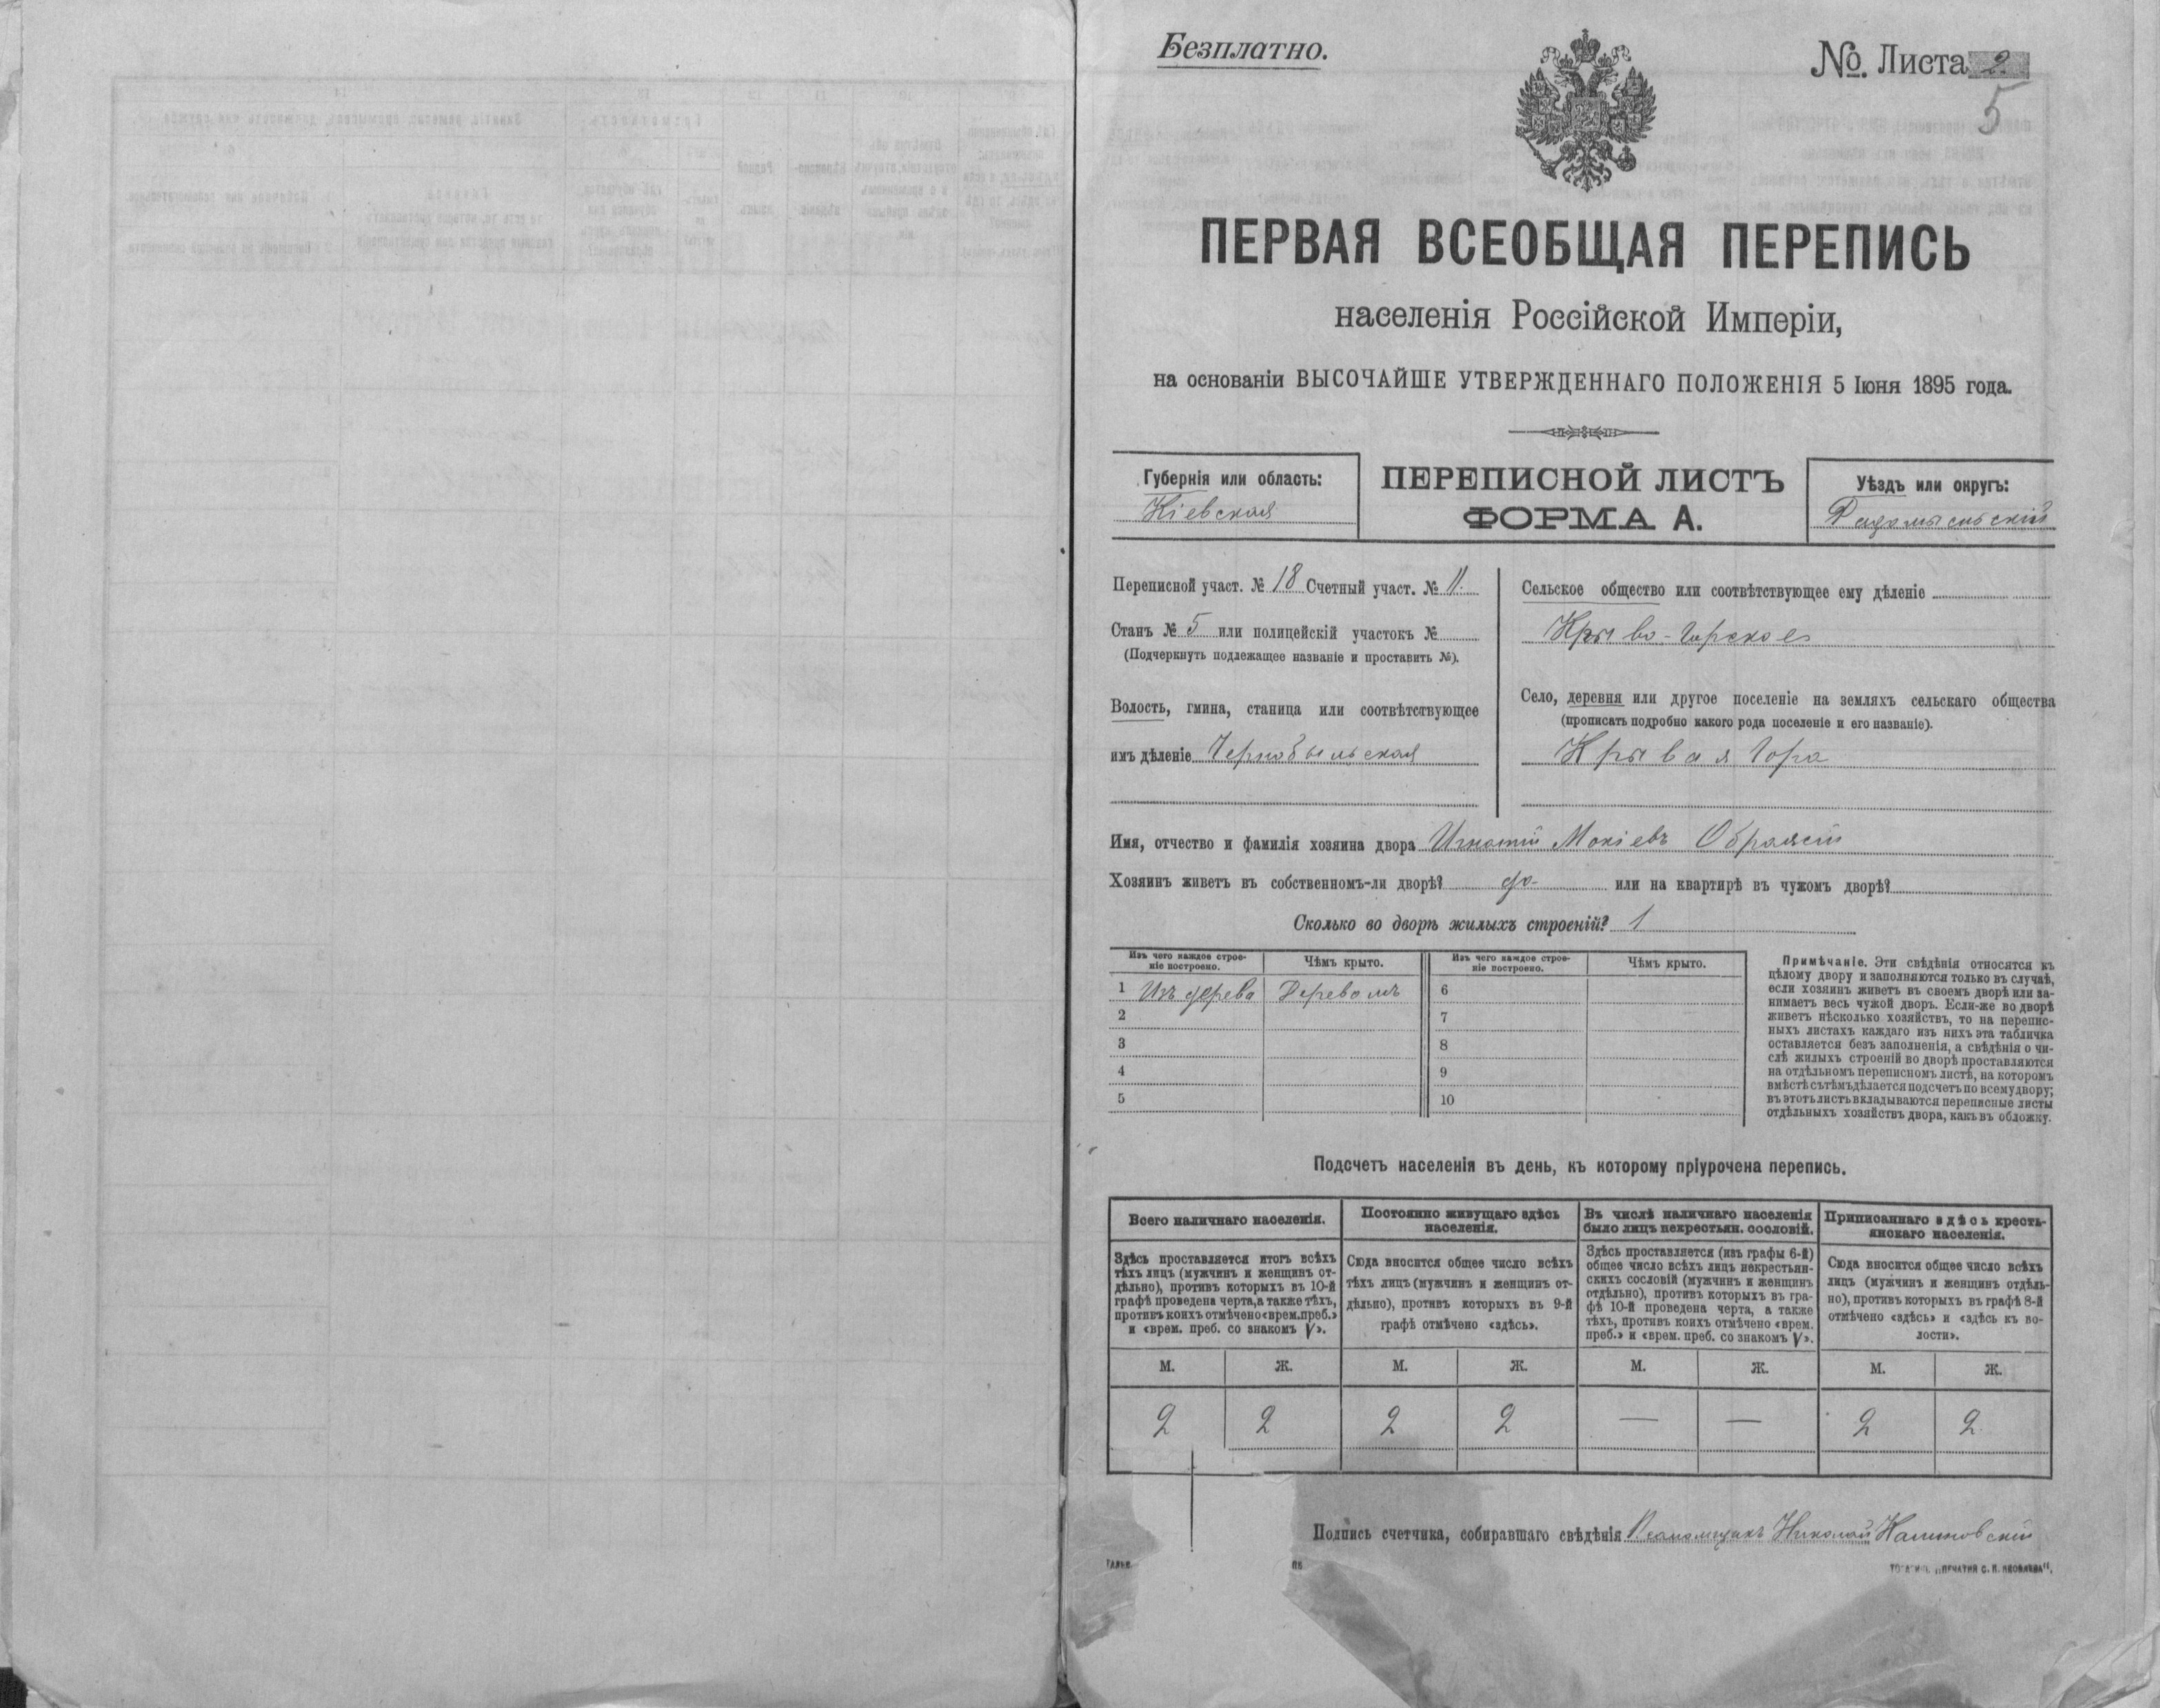 Безплатно.
№. Листа 2
5
ПЕРВАЯ ВСЕОБЩАЯ ПЕРЕПИСЬ
населенія Россійской Имперіи,
на основаніи ВЫСОЧАЙШЕ УТВЕРЖДЕННАГО ПОЛОЖЕНІЯ 5 Іюня 1895 года.
Губернія или область:
Кіевская
ПЕРЕПИСНОЙ ЛИСТЪ
ФОРМА А.
Уѣздъ или округъ:
Радомысльскій
Переписной участ. № 18 Счетный участ. № 11.
Станъ № 5 или полицейскій участокъ №
(Подчеркнуть подлежащее названіе и проставить №).
Волость, гмина, станица или соотвѣтствующее
имъ дѣленіе Чернобыльская
Сельское общество или соотвѣтствующее ему дѣленіе
Крыво-Горское
Село, деревня или другое поселеніе на земляхъ сельскаго общества
(прописать подробно какого рода поселеніе и его названіе).
Крывая Гора
Имя, отчество и фамилія хозяина двора Игнатій Мокіевъ
Хозяинъ живетъ въ собственномъ-ли дворѣ? да или на квартирѣ въ чужомъ дворѣ?
Сколько во дворѣ жилыхъ строеній? 1
Изъ чего каждое строе-
ніе построено.
Чѣмъ крыто.
Изъ чего каждое строе-
ніе построено.
Чѣмъ крыто.
1 Изъ дерева Деревомъ 6
2 7
3 8
4 9
5 10
Примѣчаніе. Эти свѣдѣнія относятся къ
цѣлому двору и заполняются только въ случаѣ,
если хозяинъ живетъ въ своемъ дворѣ или за-
нимаетъ весь чужой дворъ. Если-же во дворѣ
живетъ нѣсколько хозяйствъ, то на перепис-
ныхъ листахъ каждаго изъ нихъ эта табличка
оставляется безъ заполненія, а свѣдѣнія о чи-
слѣ жилыхъ строеній во дворѣ проставляются
на отдѣльномъ переписномъ листѣ, на которомъ
вмѣстѣ съ тѣмъ дѣлается подсчетъ по всему двору;
въ этотъ листъ вкладываются переписные листы
отдѣльныхъ хозяйствъ двора, какъ въ обложку.
Подсчетъ населенія въ день, къ которому пріурочена перепись.
Всего наличнаго населенія.
Здѣсь проставляется итогъ всѣхъ
тѣхъ лицъ (мужчинъ и женщинъ от-
дѣльно), противъ которыхъ въ 10-й
графѣ проведена черта, а также тѣхъ,
противъ коихъ отмѣчено «врем. преб.»
и «врем. преб. со знакомъ V».
Постоянно живущаго здѣсь
населенія.
Сюда вносится общее число всѣхъ
тѣхъ лицъ (мужчинъ и женщинъ от-
дѣльно), противъ которыхъ въ 9-й
графѣ отмѣчено «здѣсь».
Въ числѣ наличнаго населенія
было лицъ некрестьян. сословій.
Здѣсь проставляется (изъ графы 6-й)
общее число всѣхъ лицъ некрестьян-
скихъ сословій (мужчинъ и женщинъ
отдѣльно), противъ которыхъ въ гра-
фѣ 10-й проведена черта, а также
тѣхъ, противъ коихъ отмѣчено «врем.
преб.» и «врем. преб. со знакомъ V».
Приписаннаго здѣсь кресть-
янскаго населенія.
Сюда вносится общее число всѣхъ
лицъ (мужчинъ и женщинъ отдѣль-
но), противъ которыхъ въ графѣ 8-й
отмѣчено «здѣсь» и «здѣсь къ во-
лости».
М. Ж. М. Ж. М. Ж. М. Ж.
2 2 2 2 — — 2 2
Подпись счетчика, собиравшаго свѣдѣнія Псаломщикъ Николай Калиновскій